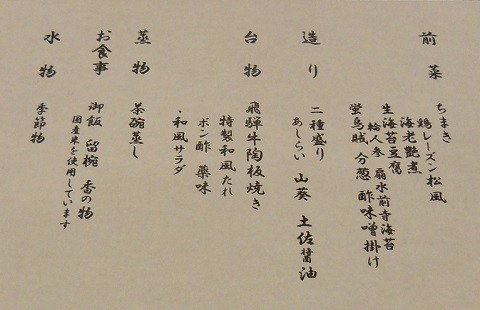 前菜
ちまき
鶏レーズン松風
海老艶煮
生海苔豆腐
輪人参 扇水前寺海苔
蛍烏賊 分葱 酢味噌掛け
造り
二種盛り
あしらい 山葵 土佐醤油
台物
飛騨牛陶板焼き
特製和風たれ
ポン酢 薬味
・和風サラダ
蒸物
茶碗蒸し
お食事
御飯 留椀 香の物
国産米を使用しています
水物
季節物